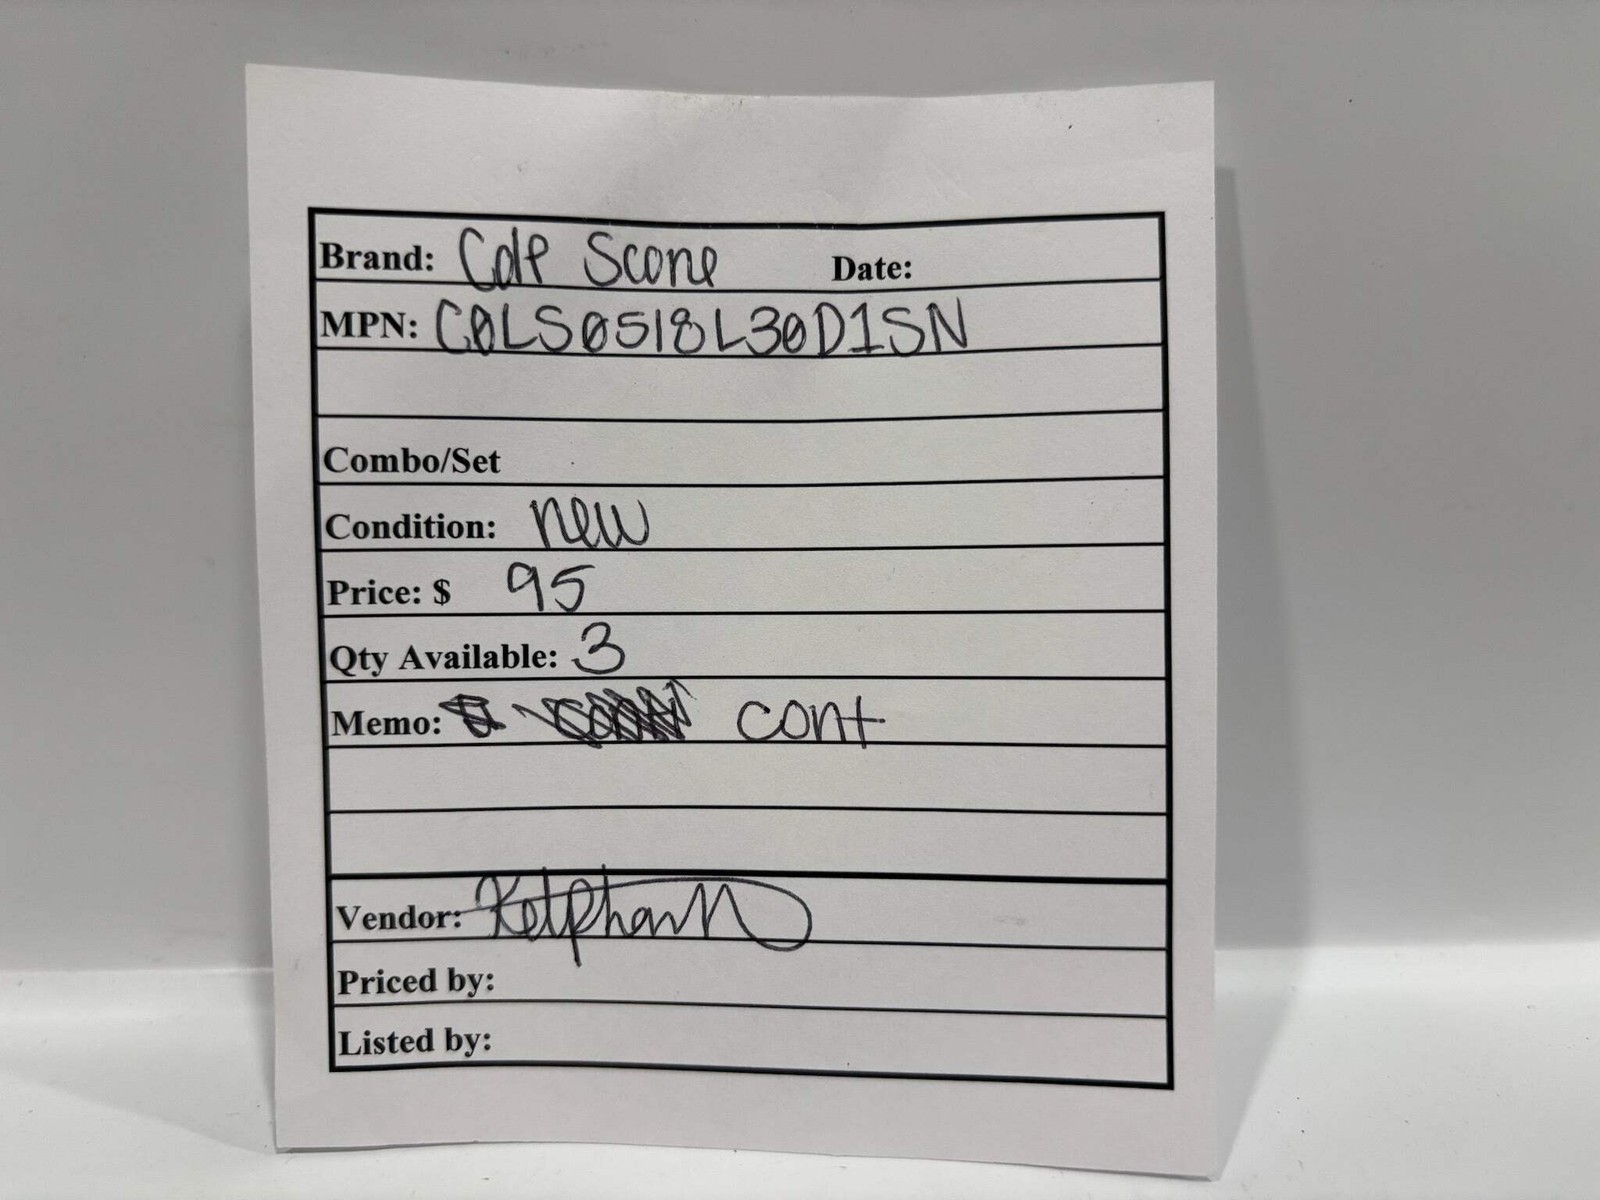 Brand: Cole Scone Date:
MPN: C0LS0518L30D1SN
Combo/Set
Condition: new
Price: $ 95
Qty Available: 3
Memo: cont
Vendor:
Priced by:
Listed by: